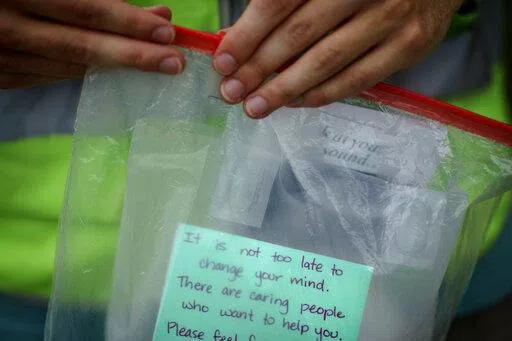 sound.
It is not too late to
change your mind.
There are caring people
who want to help you.
Please feel f